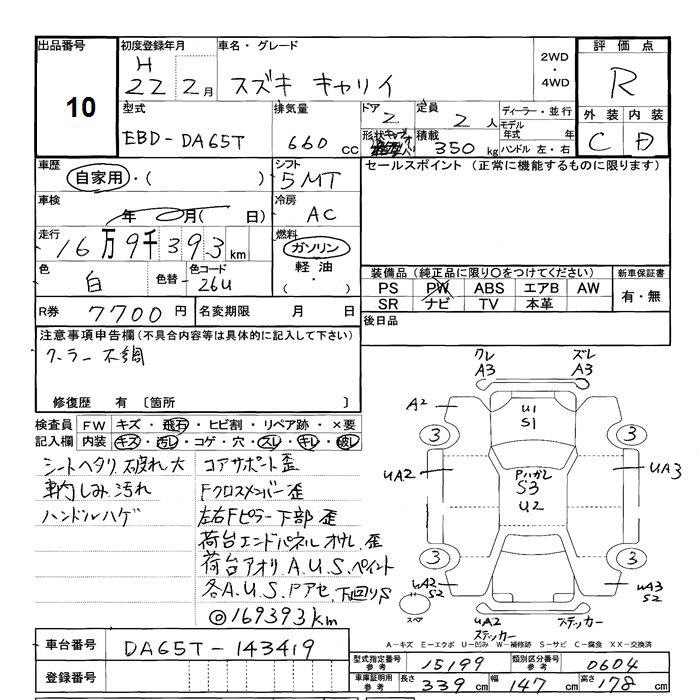 出品番号 初度登録年月 車名・グレード 2WD・4WD 評価点
10 H22 2月 スズキ キャリイ R
型式 排気量 ドア 定員 ディーラー・並行
EBD-DA65T 660cc 2 2人 モデル年式 年
形状 積載 350kg ハンドル 左・右
外装 内装
C D
車歴 自家用・( ) シフト 5MT セールスポイント (正常に機能するものに限ります)
車検 年 月( 日) 冷房 AC
走行 16万9千393km 燃料 ガソリン 軽油・( )
色 白 色替 色コード 26U
装備品 (純正品に限り○をつけてください) 新車保証書
PS PW ABS エアB AW 有・無
SR ナビ TV 本革
R券 7700円 名変期限 月 日 後日品
注意事項申告欄 (不具合内容等は具体的に記入して下さい)
クーラー不調
修復歴 有 〔箇所 〕
検査員 FW キズ・飛石・ヒビ割・リペア跡・×要
記入欄 内装 キズ・汚レ・コゲ・穴・スレ・キレ・破レ
シートヘタリ、破れ大 コアサポート歪
車内しみ汚れ Fクロスメンバー歪
ハンドルハゲ 左右Fピラー下部歪
荷台エンドパネル オサレ、歪
荷台アオリ A.U.S.ペイント
各A.U.S.Pアセ、下回りS
◎169393km
クレ A3 ズレ A3
A2 U1 S1
3 3
UA2 Pハガレ S3 U2 UA3
3 3
UA2 S2 UA3 S2
スペア UA2 ステッカー ステッカー
A-キズ E-エクボ U-凹み W-補修跡 S-サビ C-腐食 XX-交換済
車台番号 DA65T-143419
登録番号
型式指定番号 参考 15199 類別区分番号 参考 0604
車庫証明用 参考 長さ 339cm 幅 147cm 高さ 178cm